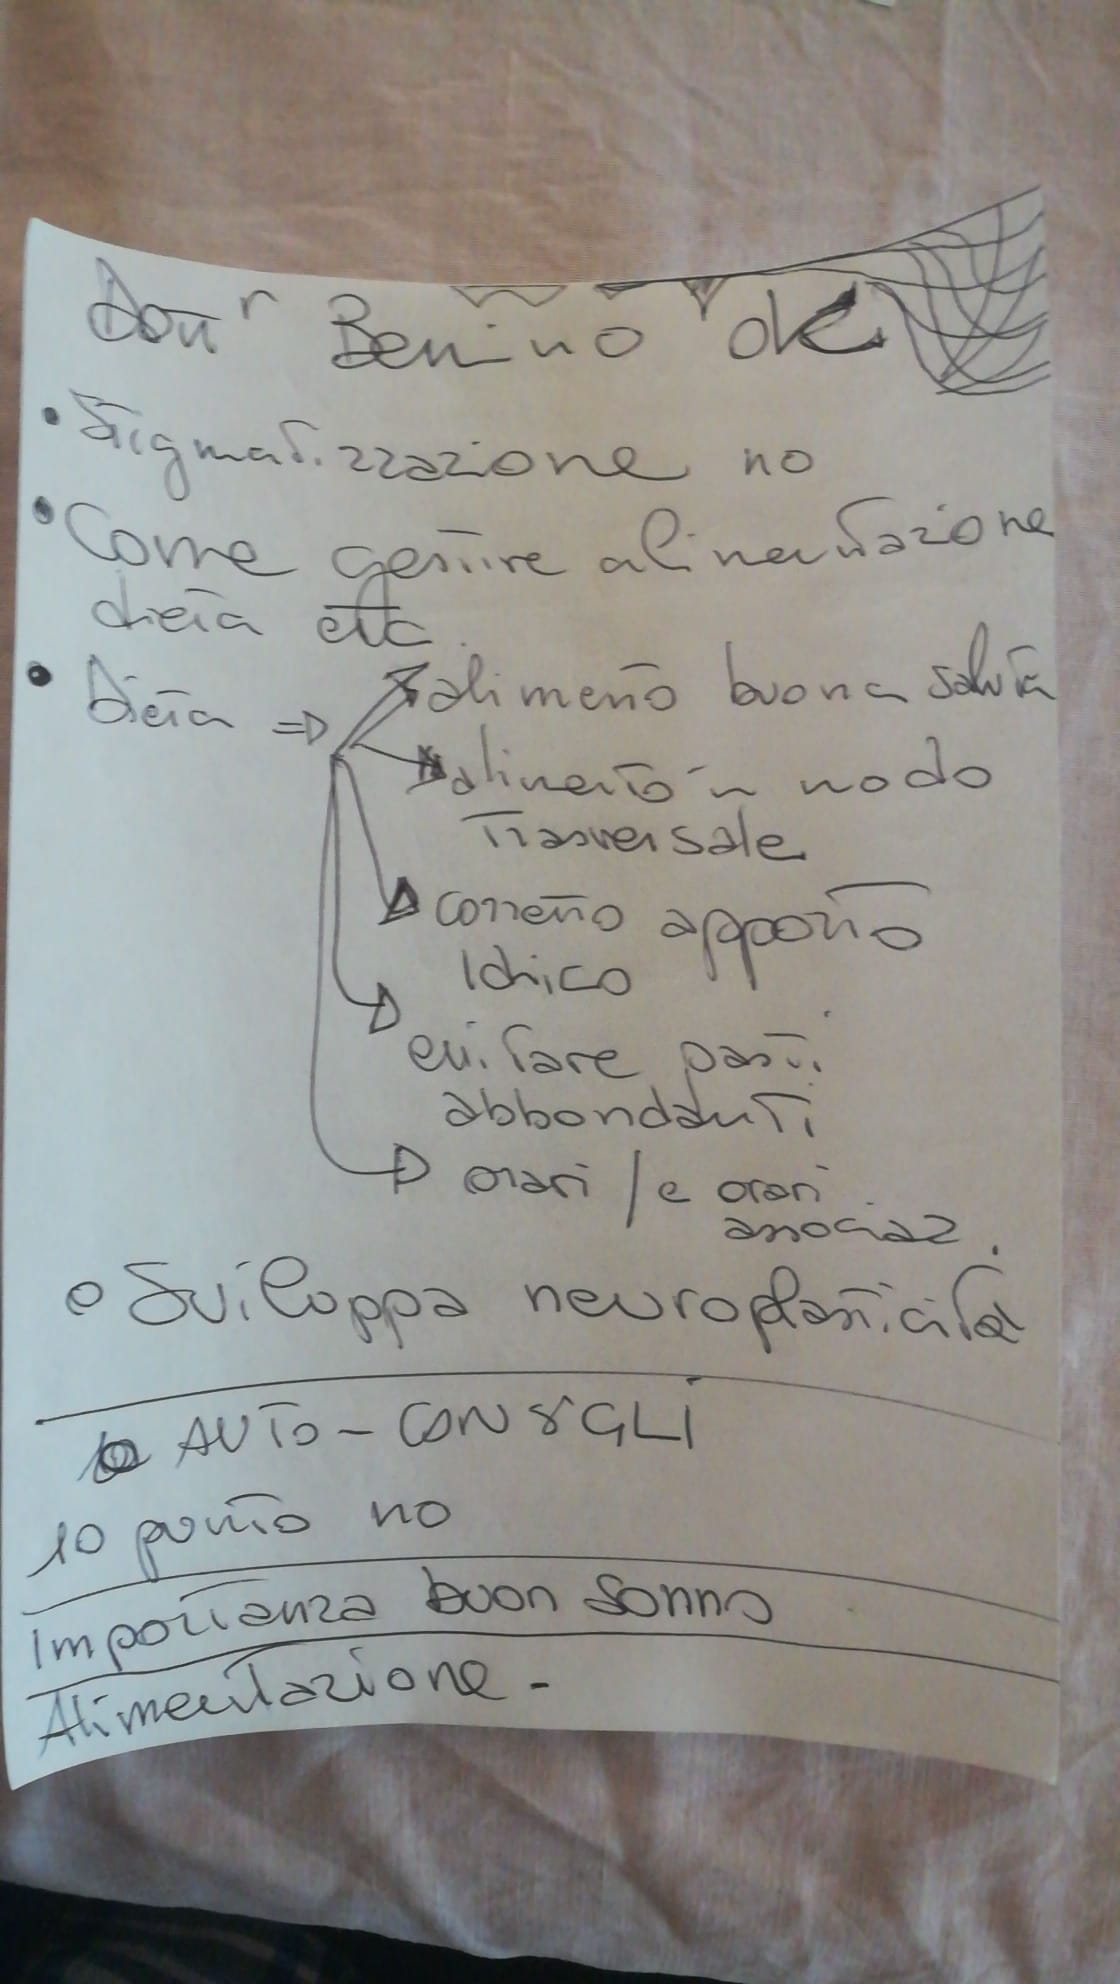 Dott^r Benino ok
• Stigmatizzazione no
• Come gestire alimentazione
dieta etc.
• Dieta => alimento buona salute
alimento in modo
trasversale
corretto apporto
Idrico
evitare pasti
abbondanti
orari / e orari
associaz.
• Sviluppa neuroplasticità
AUTO-CONSIGLI
10 punto no
Importanza buon sonno
Alimentazione -